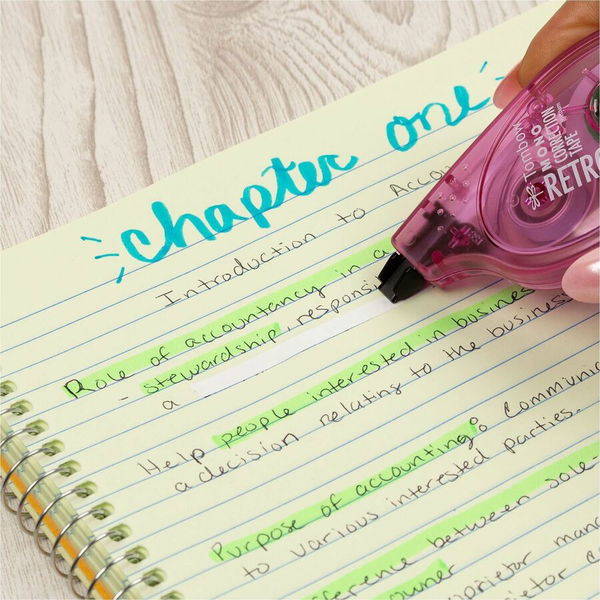 chapter one
Introduction to
Role of accountancy in a
- stewardship, respons
a
Help people interested in business
a decision relating to the business
Purpose of accounting: Communic
to various interested parties.
ference between sole-
owner
Tombow
MONO
CORRECTION
TAPE
RETRO